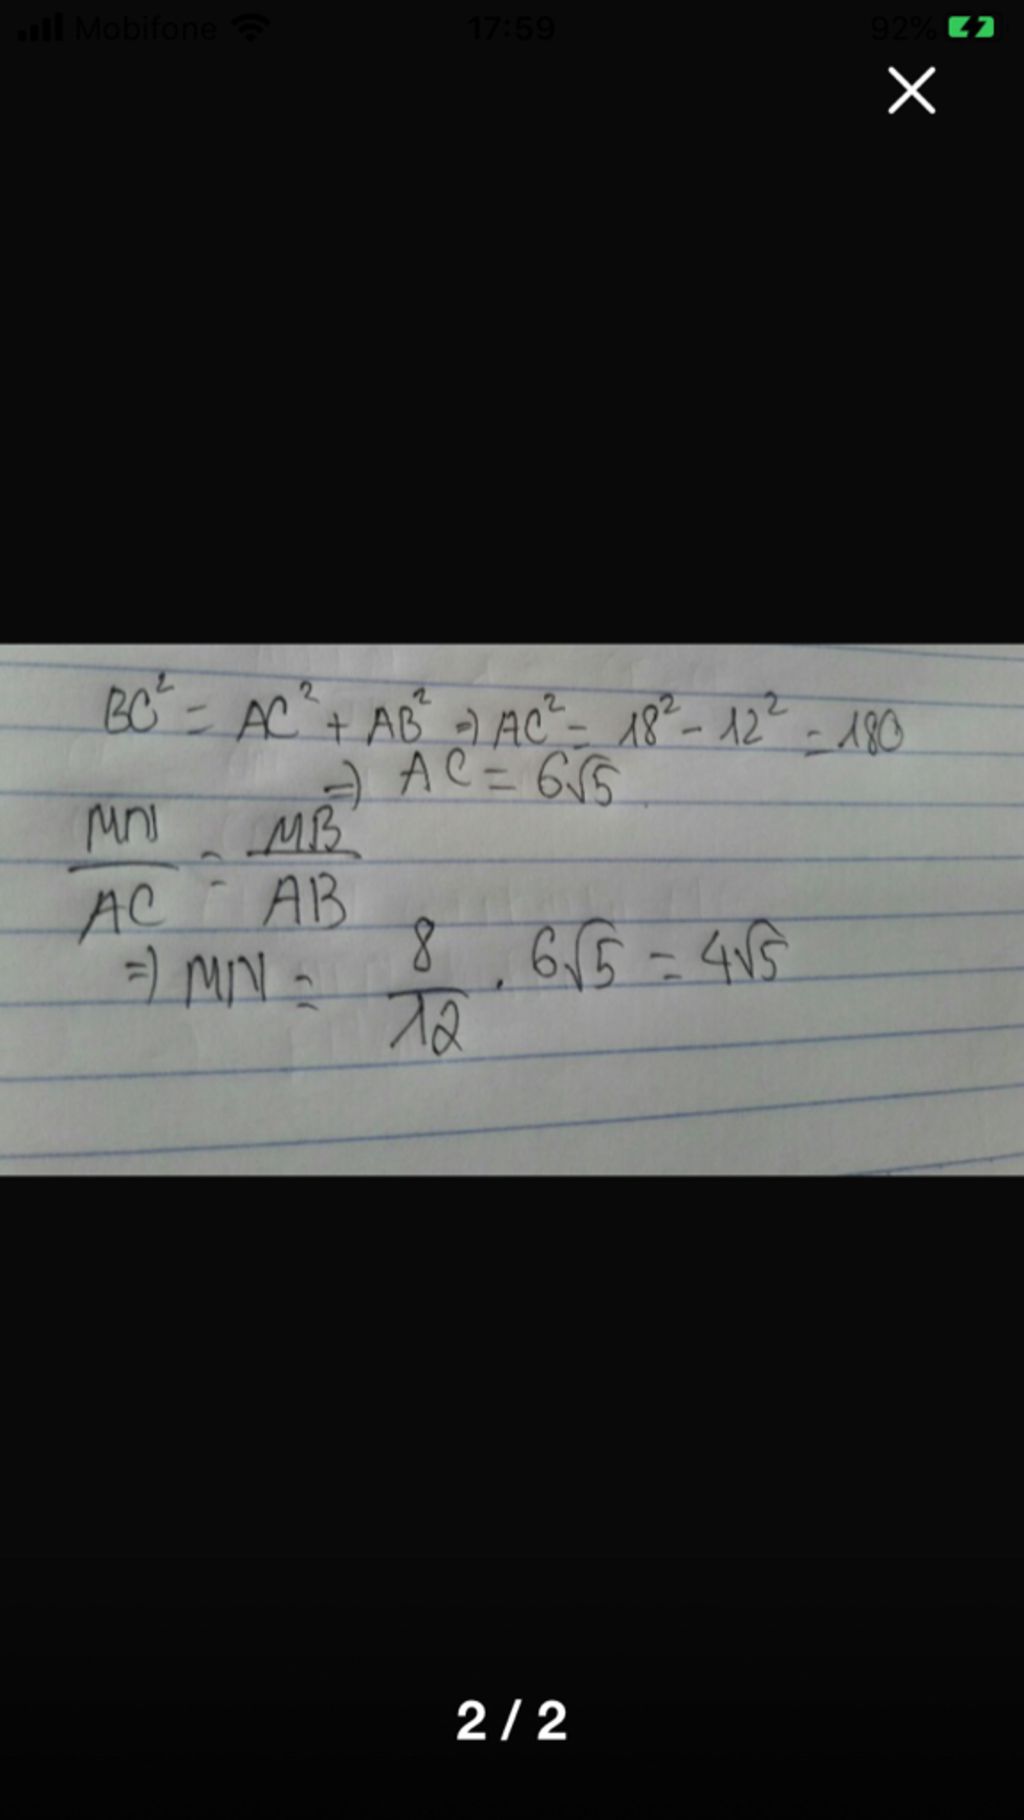 Mobifone 17:59 92%
BC² = AC² + AB² => AC² = 18² - 12² = 180
=> AC = 6√5
MN/AC = MB/AB
=> MN = 8/12 . 6√5 = 4√5
2 / 2